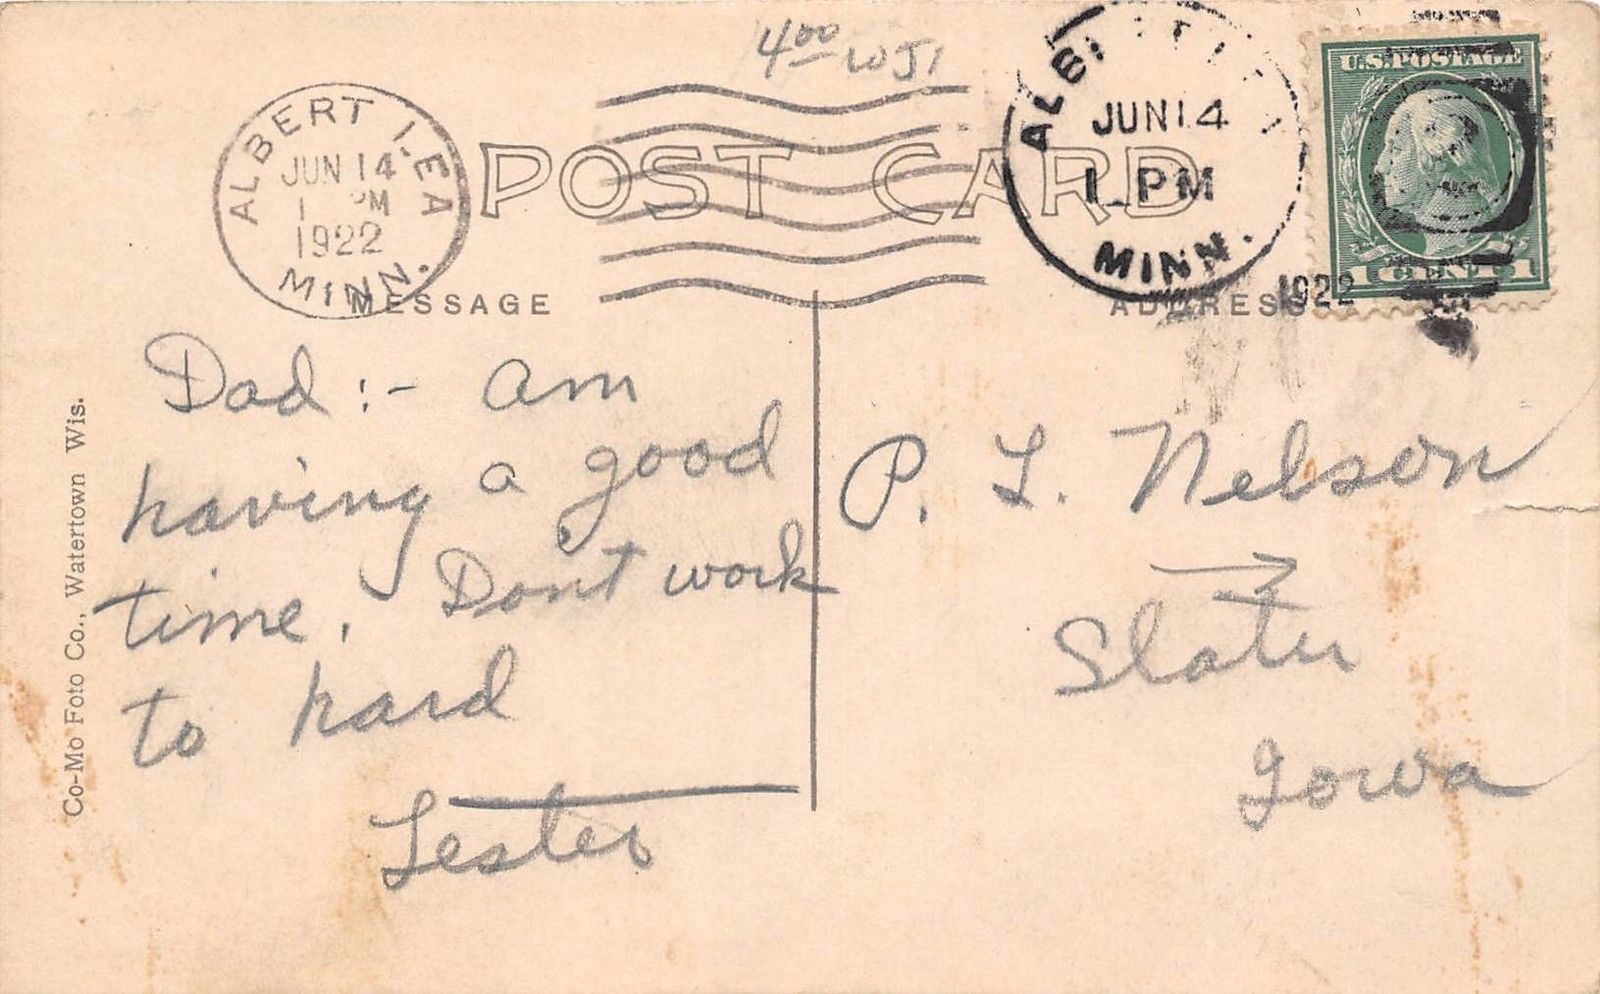 4.00 WJ1
ALBERT LEA
JUN 14
1 PM
1922
MINN.
POST CARD
ALBERT LEA
JUN 14
1 PM
MINN.
1922
U.S. POSTAGE
1 CENT 1
MESSAGE
ADDRESS
Dad :- am
having a good
time. Dont work
to hard
Lester
P. L. Nelson
Slater
Iowa
Co-Mo Foto Co., Watertown Wis.